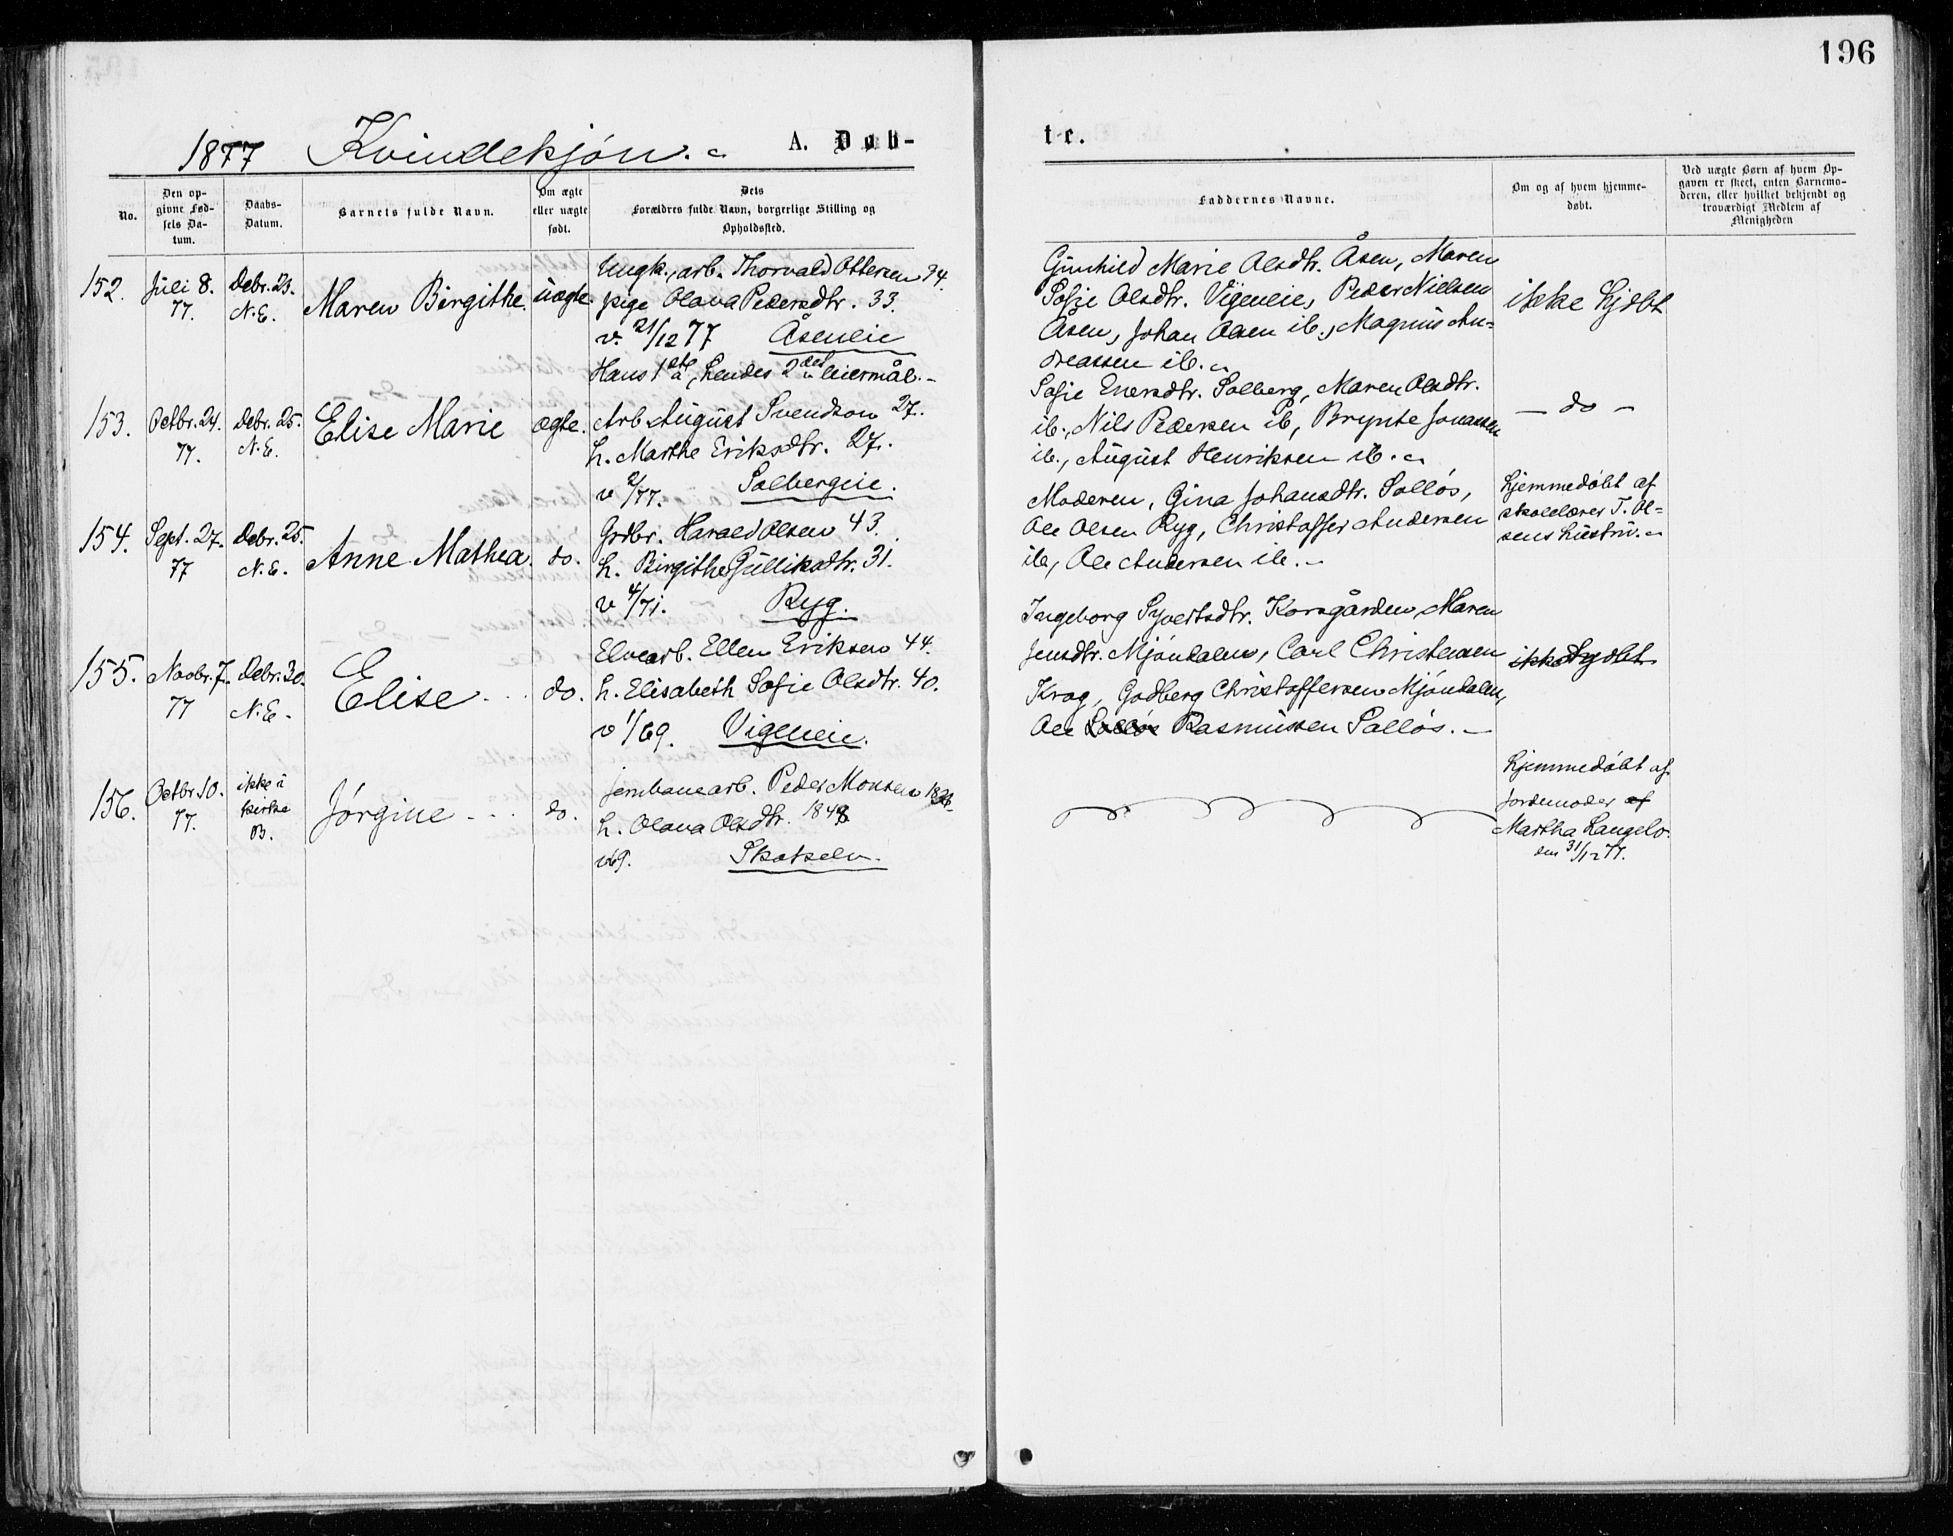 196
1877 Kvindekjön.
A. Døb-
te.
No.
Den op-
givne Fød-
sels Da-
tum.
Daabs-
Datum.
Barnets fulde Navn.
Om ægte
eller uægte
født.
Dets
Forældres fulde Navn, borgerlige Stilling og
Opholdssted.
Faddernes Navne.
Om og af hvem hjemme-
døbt.
Ved uægte Børn af hvem Op-
gaven er skeet, enten Barnemo-
deren, eller hvilket bekjendt og
troværdigt Medlem af
Menigheden
152.
Juli 8.
77.
Debr. 23.
N.E.
Maren Birgithe.
uægte.
Ungk., arb. Thorvald Ottersen 34.
pige Olava Pedersdtr. 33.
v. 21/12 77 Åseneie
Hans 1ste, hendes 2det leiermål.-
Gunhild Marie Olsdtr. Åsen, Maren
Sofie Olsdtr. Vigeneie, Peder Nielsen
Åsen, Johan Olsen ib., Magnus An-
dreassen ib.
ikke hjdbt
153.
Octbr. 24.
77.
Debr. 25.
N.E.
Elise Marie
ægte.
Arb. August Svendson 27.
h. Marthe Eriksdtr. 27.
v 2/77. Solbergeie.
Sofie Enersdtr. Solberg, Maren Olsdtr.
ib., Nils Pedersen ib, Brynte Jonassen
ib., August Henriksen ib.
- do -
154.
Sept. 27.
77
Debr. 25.
N.E.
Anne Mathea.
do.
Grdbr. Harald Olsen 43.
h. Birgithe Gulliksdtr. 31.
v 4/71. Ryg.
Moderen, Gina Johansdtr. Solløs,
Ole Olsen Ryg, Christoffer Andersen
ib, Ole Andersen ib.-
hjemmedøbt af
skolelærer T. Ol=
sens hustru.
155.
Novbr. 7.
77
Debr. 30.
N.E.
Elise
do.
Elvearb. Ellen Eriksen 44.
h. Elisabeth Sofie Olsdtr. 40.
v 1/69. Vigeneie.
Ingeborg Syvertsdtr. Korsgården, Maren
Jensdtr. Mjöndalen, Carl Christensen
Krog, Godberg Christoffersen Mjöndalen,
Ole Solløs Rasmussen Solløs.-
ikke hjdbt
156.
Octbr. 10.
77.
ikke i
kirke
B.
Jørgine
do.
jernbanearb. Peder Monsen
h. Olava Olsdtr.
v69. Skotselv.
hjemmedøbt af
Jordemoder af
Martha Langelo.
den 31/12 77.